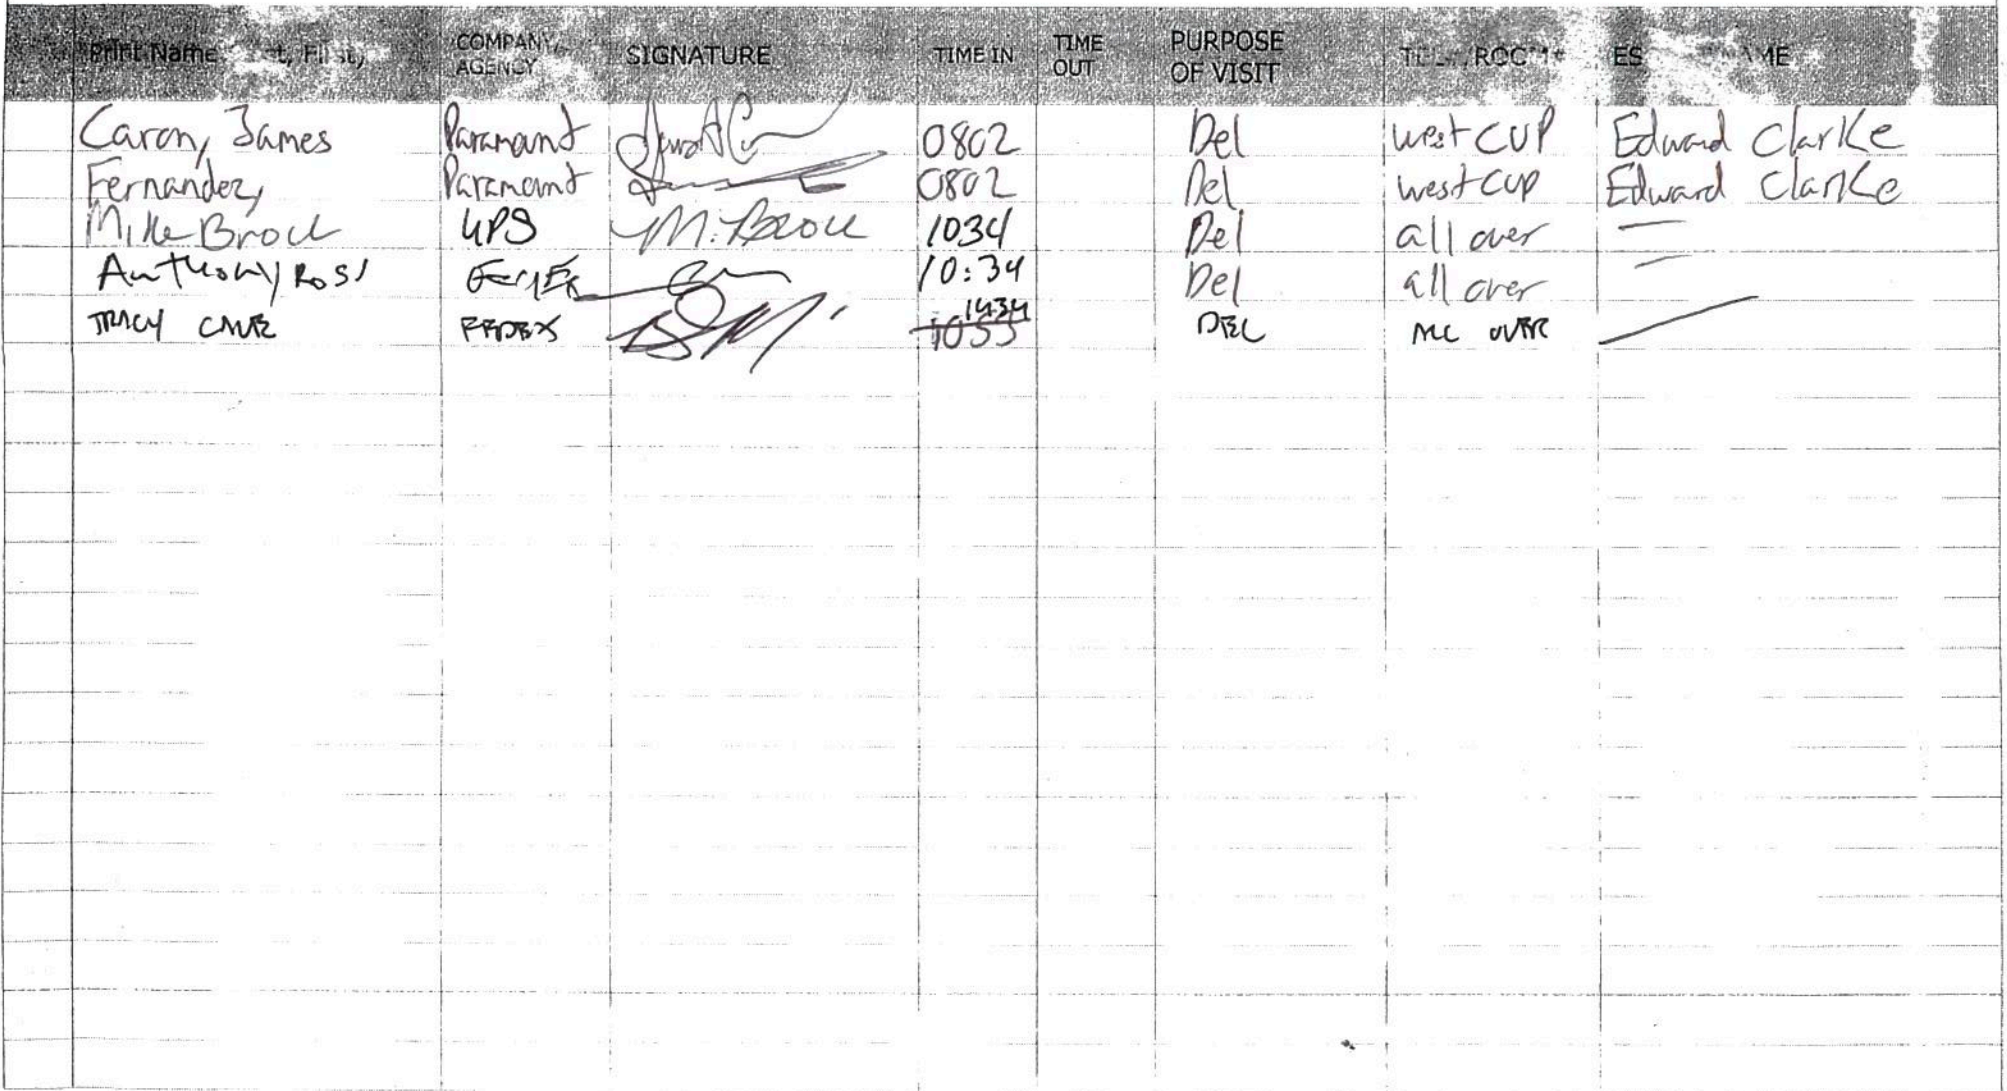 Print Name
COMPANY/ AGENCY SIGNATURE TIME IN TIME OUT PURPOSE OF VISIT
Caron, James Paramount 0802 Del west CUP Edward Clarke
Fernandez, Paramount 0802 Del west cup Edward Clarke
Mike Brock UPS M. Brock 1034 Del all over —
Anthony Ross 10:34 Del all over —
TRACY FEDEX 1434 DEL ALL OVER